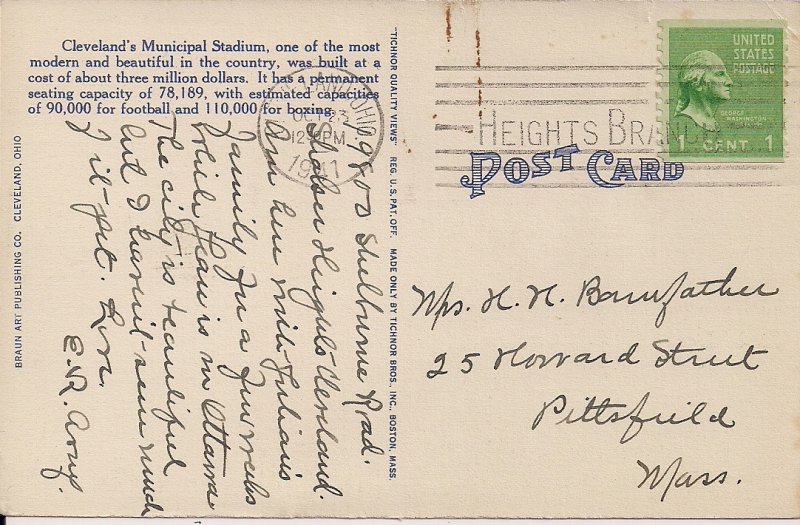 Cleveland's Municipal Stadium, one of the most
modern and beautiful in the country, was built at a
cost of about three million dollars. It has a permanent
seating capacity of 78,189, with estimated capacities
of 90,000 for football and 110,000 for boxing.
BRAUN ART PUBLISHING CO. CLEVELAND, OHIO
19800 Shelburne Road.
Shaker Heights-Cleveland.
Am here with Julian's
family for a few weeks
while Jean is in Ottawa
The city is beautiful
but I haven't seen much
of it yet. Love.
E.R.
"TICHNOR QUALITY VIEWS" REG. U.S. PAT. OFF. MADE ONLY BY TICHNOR BROS., INC., BOSTON, MASS.
CLEVELAND, OHIO
OCT 23
12 PM
1941
HEIGHTS BRANCH
UNITED
STATES
POSTAGE
GEORGE
WASHINGTON
1 CENT 1
POST CARD
Mrs. H. H.
25 Howard Street
Pittsfield
Mass.